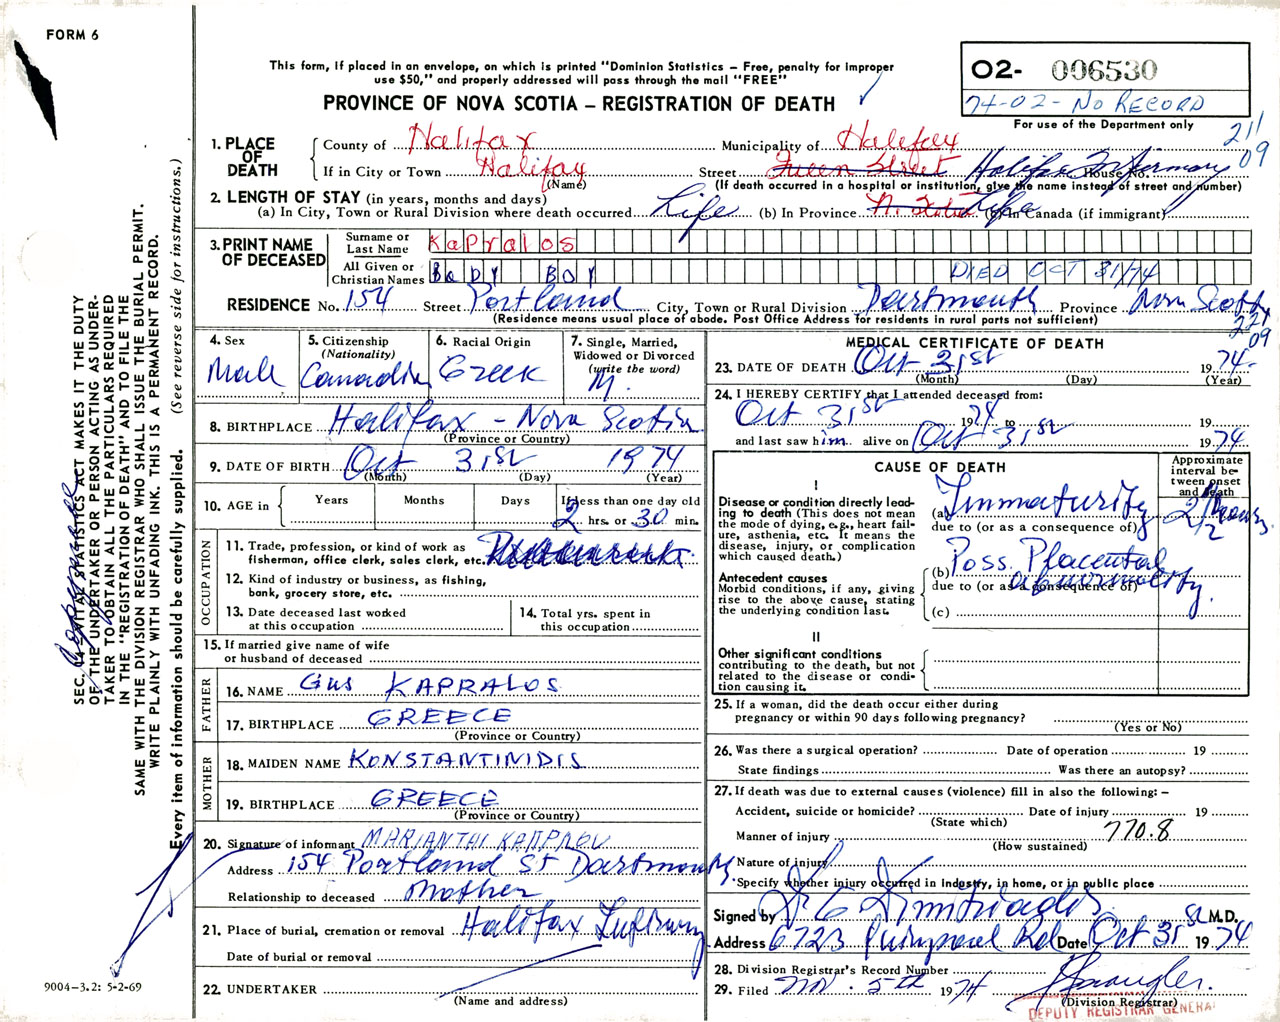 FORM 6
This form, if placed in an envelope, on which is printed "Dominion Statistics – Free, penalty for improper
use $50," and properly addressed will pass through the mail "FREE"
PROVINCE OF NOVA SCOTIA – REGISTRATION OF DEATH
O2- 006530
74-02- No RECORD
For use of the Department only
211
09
1. PLACE OF DEATH
County of Halifax Municipality of Halifax
If in City or Town Halifax (Name) Street Queen Street Halifax Infirmary House No.
(If death occurred in a hospital or institution, give the name instead of street and number)
2. LENGTH OF STAY (in years, months and days)
(a) In City, Town or Rural Division where death occurred Life (b) In Province N. Scotia Life (c) In Canada (if immigrant)
3. PRINT NAME OF DECEASED
Surname or Last Name Kapralos
All Given or Christian Names BaDY BOY DIED OCT 31/74
RESIDENCE No. 154 Street Portland City, Town or Rural Division Dartmouth Province Nova Scotia
(Residence means usual place of abode. Post Office Address for residents in rural parts not sufficient)
09
4. Sex
Male
5. Citizenship
(Nationality)
Canadian
6. Racial Origin
Greek
7. Single, Married,
Widowed or Divorced
(write the word)
8. BIRTHPLACE Halifax – Nova Scotia
(Province or Country)
9. DATE OF BIRTH Oct 31st 1974
(Month) (Day) (Year)
10. AGE in Years Months Days If less than one day old
2 hrs. or 30 min.
OCCUPATION
11. Trade, profession, or kind of work as
fisherman, office clerk, sales clerk, etc.
12. Kind of industry or business, as fishing,
bank, grocery store, etc.
13. Date deceased last worked
at this occupation
14. Total yrs. spent in
this occupation
15. If married give name of wife
or husband of deceased
FATHER
16. NAME Gus KAPRALOS
17. BIRTHPLACE GREECE
(Province or Country)
MOTHER
18. MAIDEN NAME KONSTANTINIDIS
19. BIRTHPLACE GREECE
(Province or Country)
20. Signature of informant
Address 154 Portland St Dartmouth
Relationship to deceased Mother
21. Place of burial, cremation or removal Halifax
Date of burial or removal
22. UNDERTAKER
(Name and address)
MEDICAL CERTIFICATE OF DEATH
23. DATE OF DEATH Oct 31st 1974
(Month) (Day) (Year)
24. I HEREBY CERTIFY that I attended deceased from:
Oct 31st 1974 to 19
and last saw him alive on Oct 31st 1974
CAUSE OF DEATH
Approximate
interval be-
tween onset
and death
I
Disease or condition directly lead-
ing to death (This does not mean
the mode of dying, e.g., heart fail-
ure, asthenia, etc. It means the
disease, injury, or complication
which caused death.)
(a) Immaturity 2 1/2 hours
due to (or as a consequence of)
Antecedent causes
Morbid conditions, if any, giving
rise to the above cause, stating
the underlying condition last.
(b) Poss. Placental
abnormality.
due to (or as a consequence of)
(c)
II
Other significant conditions
contributing to the death, but not
related to the disease or condi-
tion causing it.
25. If a woman, did the death occur either during
pregnancy or within 90 days following pregnancy?
(Yes or No)
26. Was there a surgical operation? Date of operation 19
State findings Was there an autopsy?
27. If death was due to external causes (violence) fill in also the following: –
Accident, suicide or homicide? Date of injury 19
(State which)
Manner of injury 770.8
(How sustained)
Nature of injury
Specify whether injury occurred in industry, in home, or in public place
Signed by M.D.
Address 6723 Quinpool Rd Date Oct 31st 1974
28. Division Registrar's Record Number
29. Filed Nov. 5th 1974
(Division Registrar)
DEPUTY REGISTRAR GENERAL
SEC. 14 – VITAL STATISTICS ACT MAKES IT THE DUTY
OF THE UNDERTAKER OR PERSON ACTING AS UNDER-
TAKER TO OBTAIN ALL THE PARTICULARS REQUIRED
IN THE "REGISTRATION OF DEATH" AND TO FILE THE
SAME WITH THE DIVISION REGISTRAR WHO SHALL ISSUE THE BURIAL PERMIT.
WRITE PLAINLY WITH UNFADING INK. THIS IS A PERMANENT RECORD.
Every item of information should be carefully supplied. (See reverse side for instructions.)
9004-3.2: 5-2-69